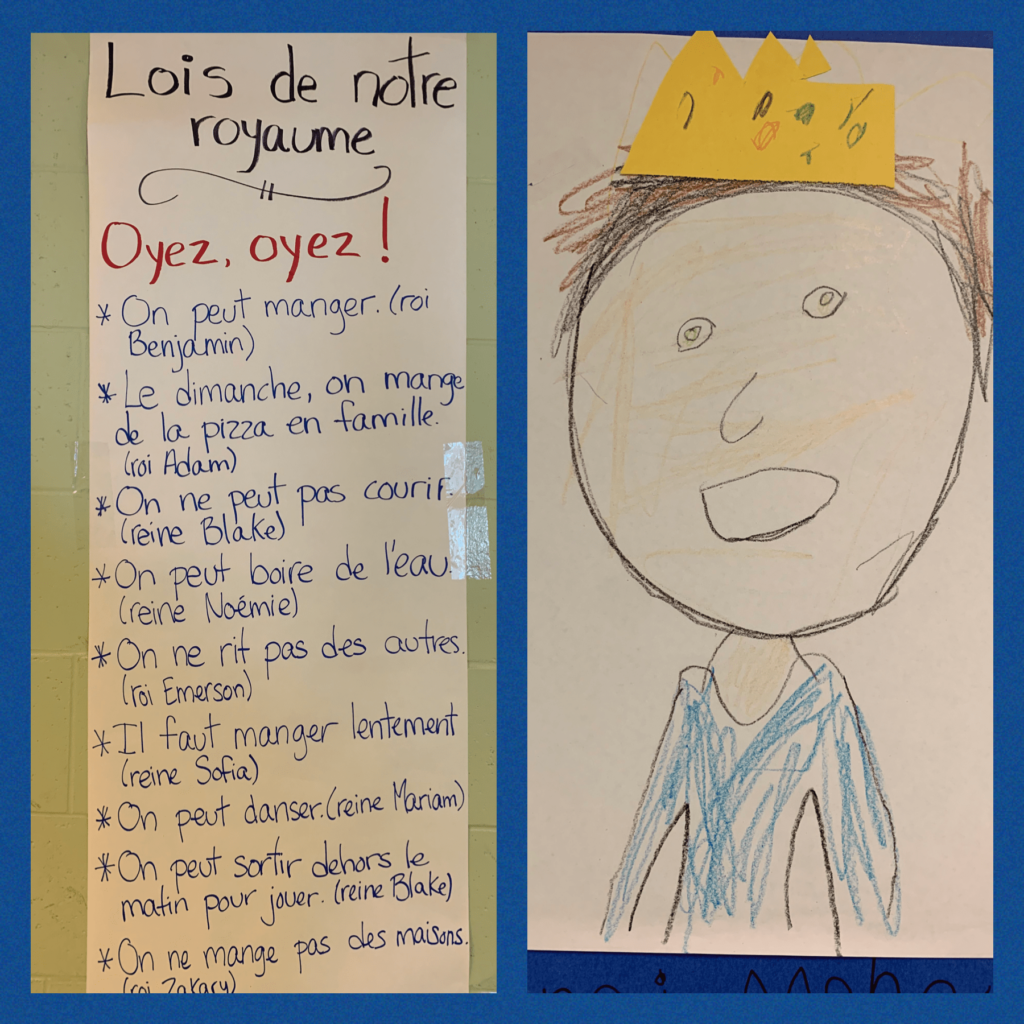 Lois de notre
royaume
Oyez, oyez !
* On peut manger. (roi
Benjamin)
* Le dimanche, on mange
de la pizza en famille.
(roi Adam)
* On ne peut pas courir.
(reine Blake)
* On peut boire de l'eau.
(reine Noémie)
* On ne rit pas des autres.
(roi Emerson)
* Il faut manger lentement
(reine Sofia)
* On peut danser. (reine Mariam)
* On peut sortir dehors le
matin pour jouer. (reine Blake)
* On ne mange pas des maisons.
(roi Zakary)